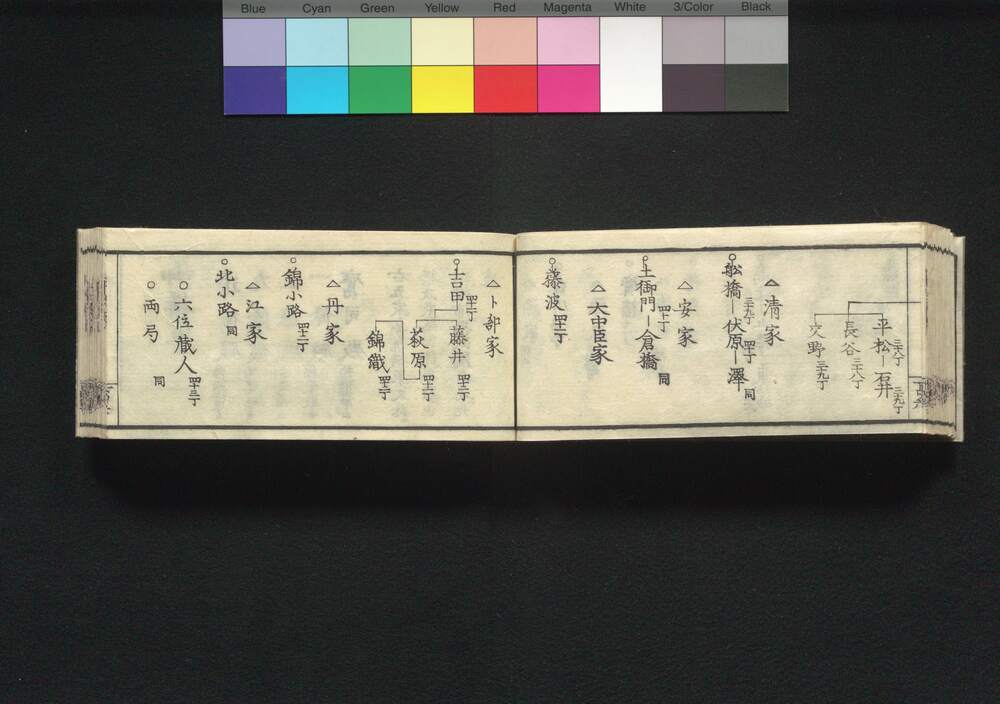 Blue Cyan Green Yellow Red Magenta White 3/Color Black
平松 三十八丁 石井 三十九丁
長谷 三十八丁
交野 三十九丁
△清家
舩橋 三十九丁 伏原 四十丁 澤 同
△安家
土御門 四十一丁 倉橋 同
△大中臣家
藤波 四十二丁
△卜部家
吉田 四十一丁 藤井 四十二丁
萩原 四十二丁
錦織 四十二丁
△丹家
錦小路 四十二丁
△江家
北小路 同
○六位蔵人 四十三丁
○両局 同